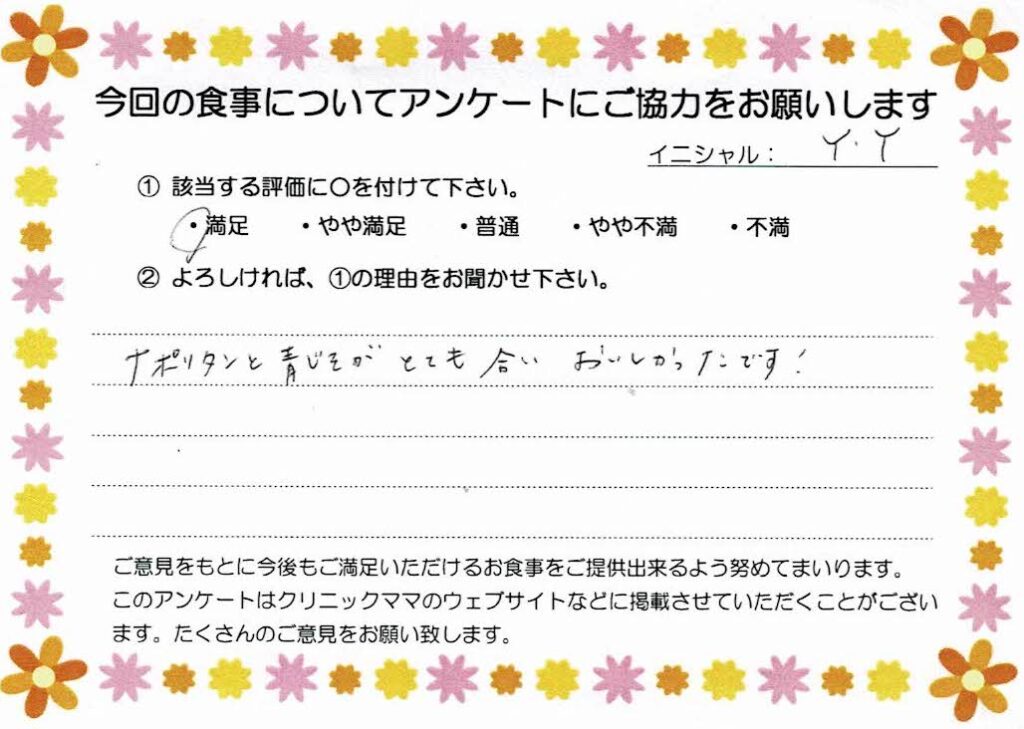 今回の食事についてアンケートにご協力をお願いします
イニシャル： Y.Y
① 該当する評価に〇を付けて下さい。
・満足 ・やや満足 ・普通 ・やや不満 ・不満
② よろしければ、①の理由をお聞かせ下さい。
ナポリタンと青じそがとても合いおいしかったです！
ご意見をもとに今後もご満足いただけるお食事をご提供出来るよう努めてまいります。
このアンケートはクリニックママのウェブサイトなどに掲載させていただくことがござい
ます。たくさんのご意見をお願い致します。